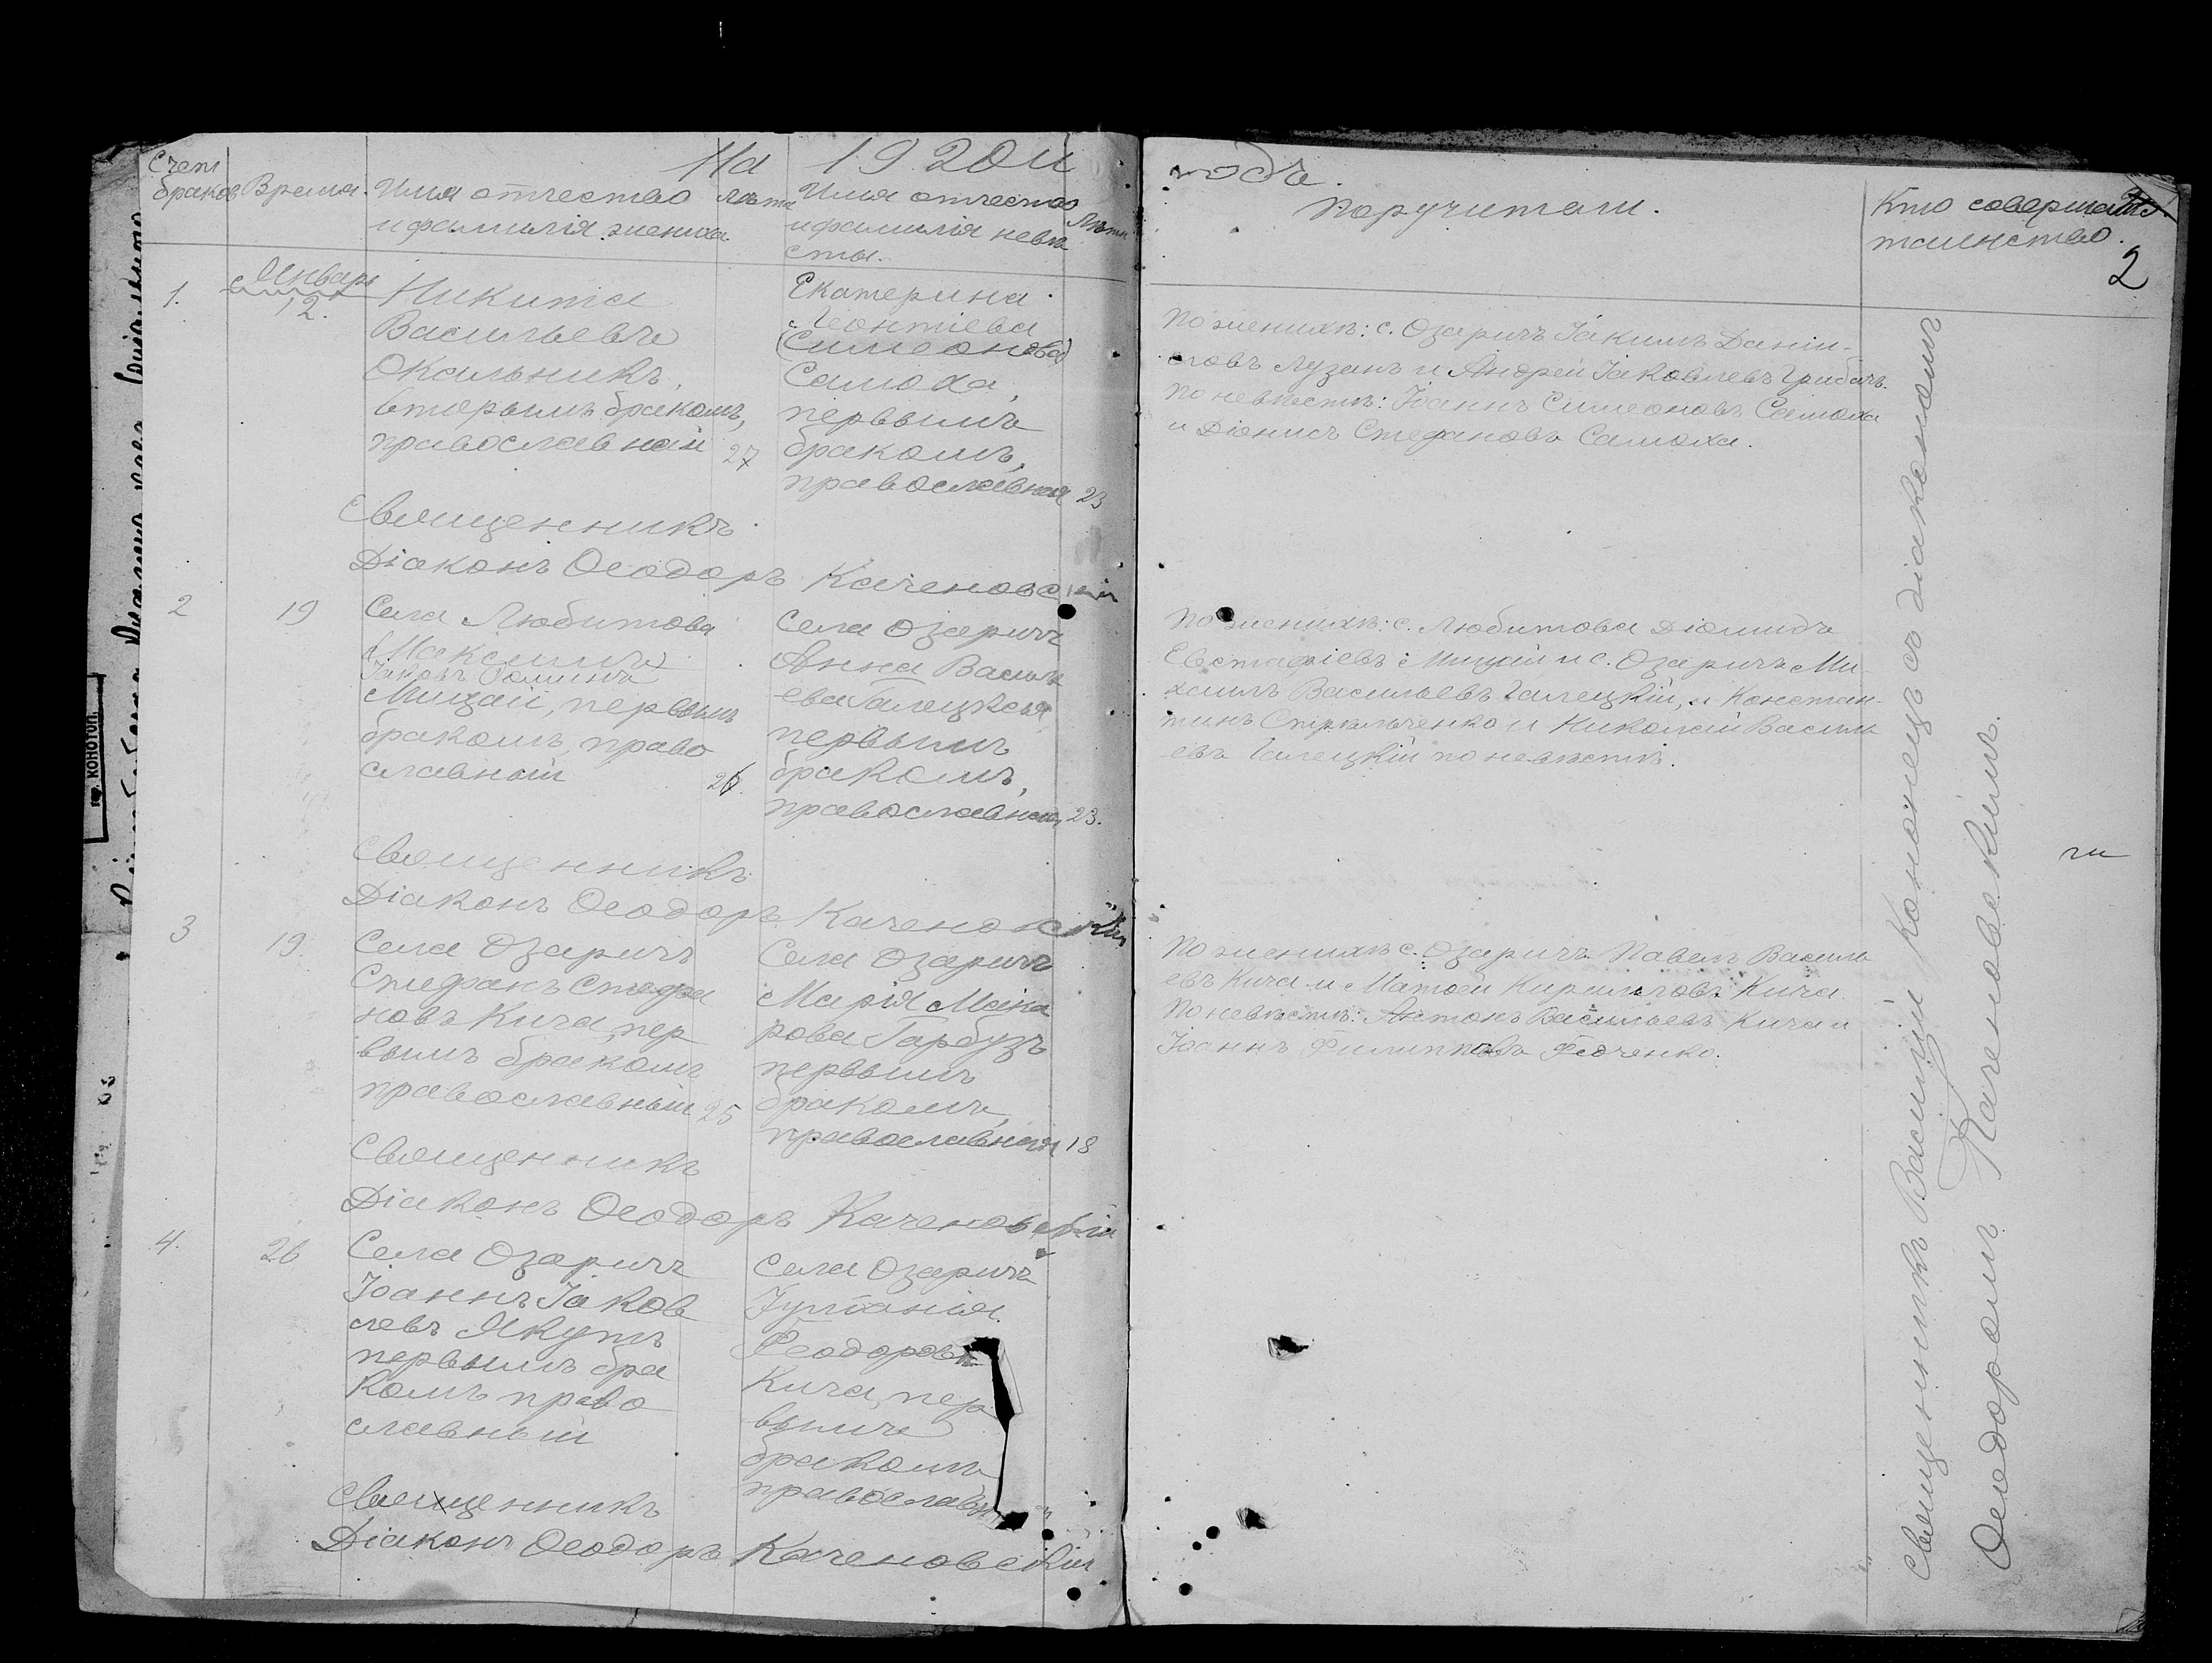 На 1920й годъ.
Счетъ браковъ
Время.
Имя отчество
и фамилія жениха.
Лѣта
Имя отчество
и фамилія невѣ
сты.
Лѣта
Поручители.
Кто совершалъ
таинство.
2
1.
Январь
12.
Никита
Васильевъ
Окальникъ,
вторымъ бракомъ,
православный 27
Екатерина
Леонтіева
(Симеонова)
Самоха,
первымъ
бракомъ,
православная 23
По женихѣ: с. Озаричъ Іакимъ Даніи-
ловъ Лузанъ и Андрей Іаковлевъ Грибачъ.
По невѣстѣ: Іоаннъ Симеоновъ Самоха
и Діонисъ Стефановъ Самоха.
Священникъ
Діаконъ Ѳеодоръ Каченовскій
2
19
Села Любитова
(Максимъ)
Іаковъ Фоминъ
Мицай, первымъ
бракомъ, право
славный
Села Озаричъ
Анна Василь
ева Галецкая
первымъ
бракомъ,
православная 23.
По женихѣ: с. Любитова Діомидъ
Евстафіевъ Мицай и с. Озаричъ Ми-
хаилъ Васильевъ Галецкій, и Констан-
тинъ Стрѣльченко и Николай Василь
евъ Галецкій по невѣстѣ.
Священникъ
Діаконъ Ѳеодоръ Каченовскій
3
19.
Села Озаричъ
Стефанъ Стефа
новъ Кича, пер
вымъ бракомъ
православный 25
Села Озаричъ
Марія Мака
рова Гарбузъ
первымъ
бракомъ,
православная 18
По женихѣ с. Озаричъ Павелъ Василь
евъ Кича и Матѳей Кирилловъ Кича.
По невѣстѣ: Антонъ Васильевъ Кича и
Іоаннъ Филипповъ Федченко.
Священникъ
Діаконъ Ѳеодоръ Каченовскій
4.
26
Села Озаричъ
Іоаннъ Іаков
левъ Якутъ
первымъ бра
комъ право
славный
Села Озаричъ
Іуліанія
Феодорова
Кича, пер
вымъ
бракомъ
православн
Священникъ
Діаконъ Ѳеодоръ Каченовскій
Священникъ Василій Кононецъ съ діакономъ
Ѳеодоромъ Каченовскимъ.
гор. КОНОТОП.